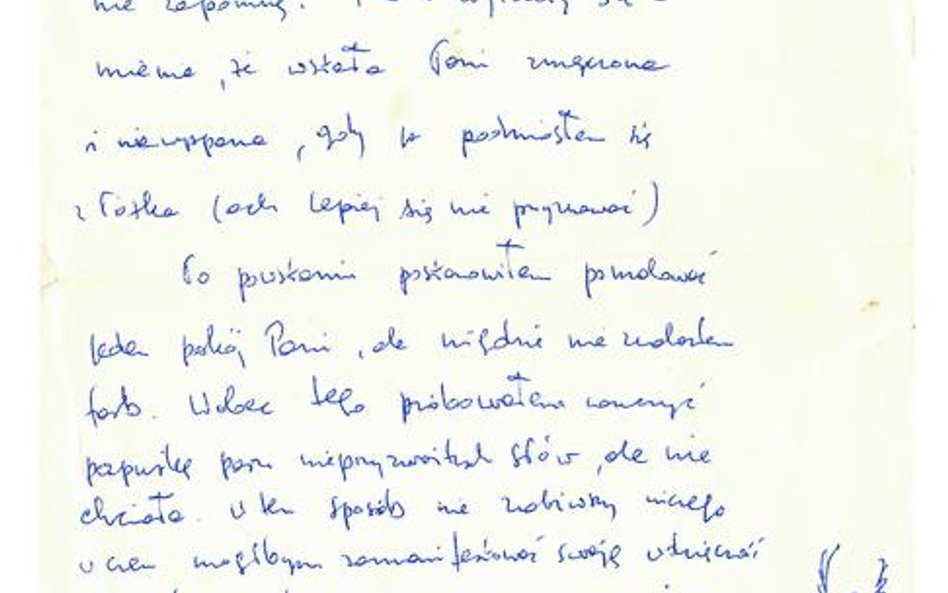 nie zapomnę.
mienia, że wstała Pani zmęczona
i niewyspana, gdy ja podniosłem się
z łóżka (ach lepiej się nie przyznawać)
Po powstaniu postanowiłem pomalować
jeden pokój Pani, ale nigdzie nie znalazłem
farb. Wobec tego próbowałem nauczyć
papużkę paru nieprzyzwoitych słów, ale nie
chciała. W ten sposób nie zrobiwszy niczego
w czem mógłbym zamanifestować swoją wdzięczność